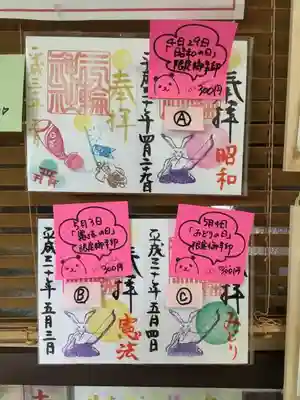 奉拝
平成三十年四月二十九日
4月29日
「昭和の日」
限定御朱印
300円
A
奉拝
昭和
5月3日
「憲法の日」
限定御朱印
300円
B
拝
憲法
平成三十年五月三日
5月4日
「みどりの日」
限定御朱印
300円
C
拝
みどり
平成三十年五月四日